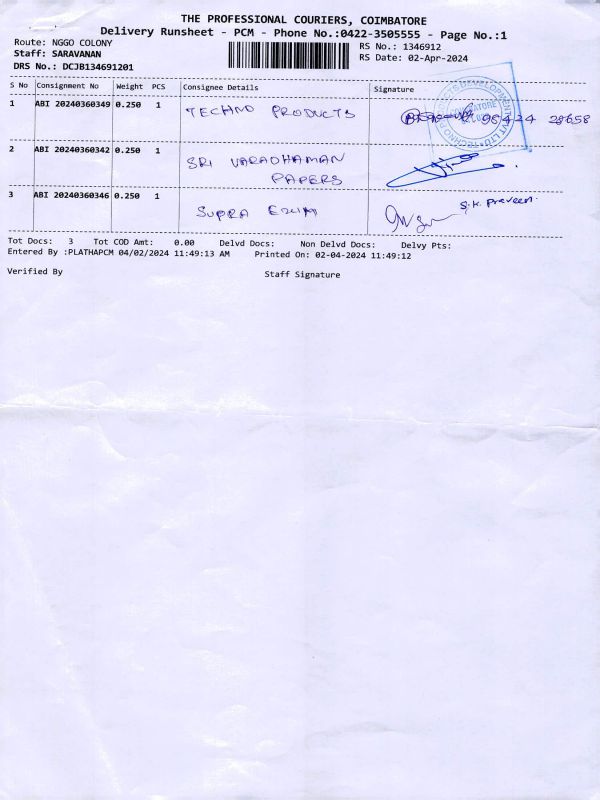 THE PROFESSIONAL COURIERS, COIMBATORE
Delivery Runsheet - PCM - Phone No.:0422-3505555 - Page No.:1
Route: NGGO COLONY
Staff: SARAVANAN
DRS No.: DCJB134691201
RS No.: 1346912
RS Date: 02-Apr-2024
S No Consignment No Weight PCS Consignee Details Signature
1 ABI 20240360349 0.250 1 TECHNO PRODUCTS 98424 28658
COIMBATORE
2 ABI 20240360342 0.250 1 SRI VARADHAMAN
PAPERS
3 ABI 20240360346 0.250 1 SUPRA S.K. Praveen.
Tot Docs: 3 Tot COD Amt: 0.00 Delvd Docs: Non Delvd Docs: Delvy Pts:
Entered By :PLATHAPCM 04/02/2024 11:49:13 AM Printed On: 02-04-2024 11:49:12
Verified By Staff Signature